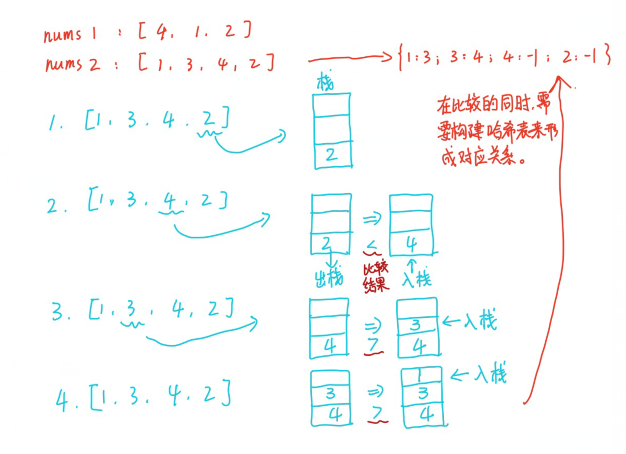 nums 1 : [ 4, 1, 2 ]
nums 2 : [ 1, 3, 4, 2 ]
{ 1:3 ; 3:4 ; 4:-1 ; 2:-1 }
在比较的同时,需
要构建哈希表来形
成对应关系。
栈
1. [1, 3. 4. 2]
2
2. [1, 3. 4, 2]
2 < 4
⇒
出栈
比较
结果
入栈
3. [1, 3, 4, 2]
⇒
3
入栈
4 > 4
4. [1. 3. 4. 2]
1
入栈
3 ⇒ 3
4 > 4